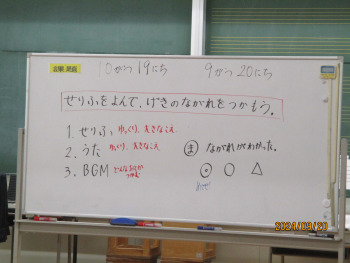 10がつ19にち 9がつ20にち
せりふをよんで、げきのながれをつかもう。
1. せりふ ゆっくり、大きなこえ
2. うた ゆっくり、大きなこえ
3. BGM
ま ながれがわかった。
◎ ○ △
めあて
2024/09/20